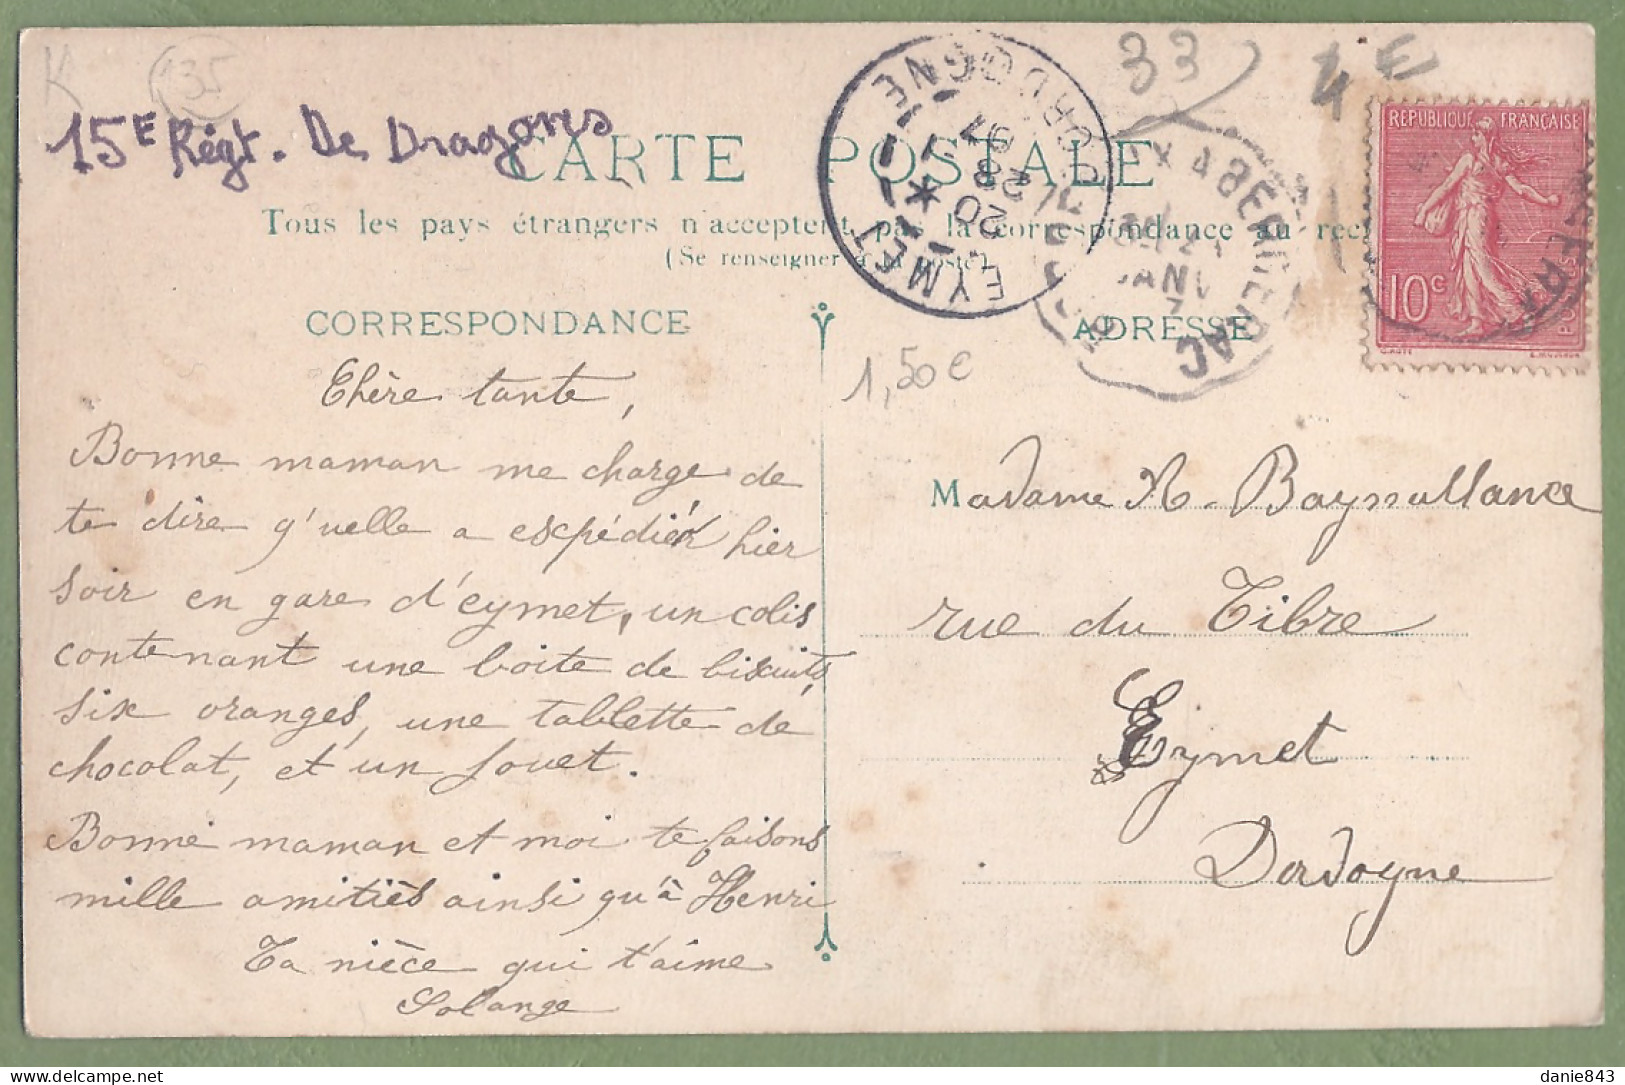 K 135
33 4€
15E Régt. De Dragons
CARTE POSTALE
Tous les pays étrangers n'acceptent pas la correspondance au
(Se renseigner à la poste)
EYMET
DORDOGNE
20
BERGERAC
JANV
RÉPUBLIQUE FRANÇAISE
10c
CORRESPONDANCE
ADRESSE
1,50€
Chère tante,
Bonne maman me charge de
te dire q'uelle a expédiér hier
soir en gare d'eymet, un colis
contenant une boite de biscuits,
six oranges, une tablette de
chocolat, et un jouet.
Bonne maman et moi te faisons
mille amitiès ainsi qu'à Henri
Ta nièce qui t'aime
Solange
Madame
rue du Tibre
Eymet
Dordogne
danie843